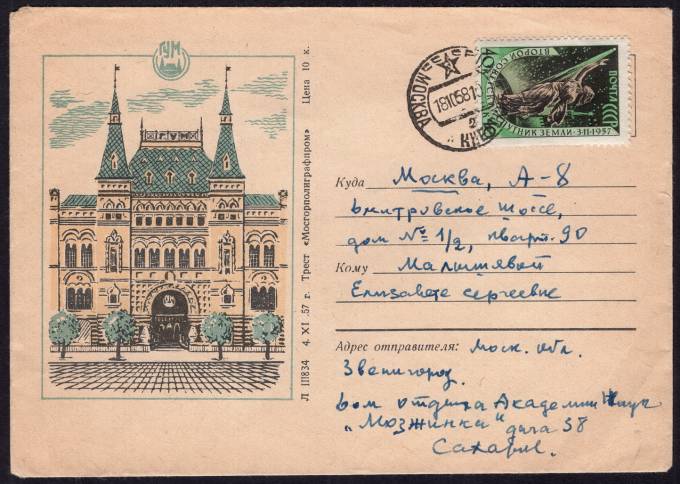 ГУМ
ГУМ
Л III834 4. XI. 57 г. Трест «Мосгорполиграфпром» Цена 10 к.
МОСКВА
18 10 58
ПОЧТА СССР
ВТОРОЙ СОВЕТСКИЙ
СПУТНИК ЗЕМЛИ · 3·II·1957
40
Куда Москва, А-8
Дмитровское шоссе,
дом № 1/2, кварт. 90
Кому Малышевой
Елизавете Сергеевне
Адрес отправителя: Моск. обл.
Звенигород.
Дом отдыха Академии Наук
„Мозжинка" дача 38